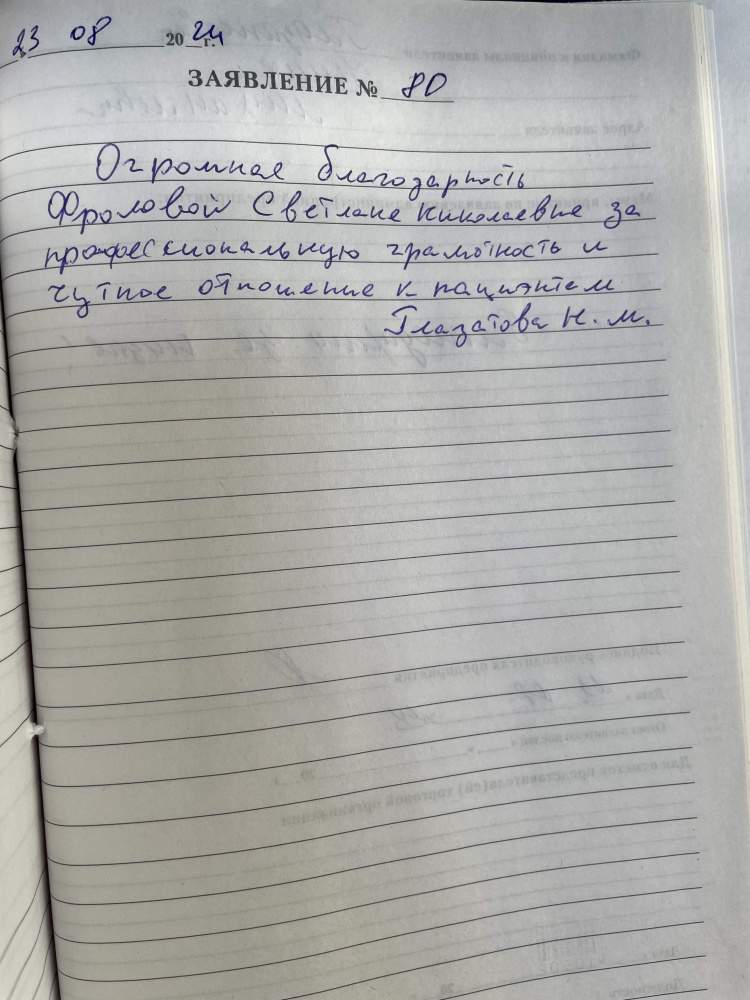 23 08 2024 г.
ЗАЯВЛЕНИЕ № 80
Огромная благодарность
Фроловой Светлане Николаевне за
профессиональную грамотность и
чуткое отношение к пациэнтам
Глазатова Н. М.